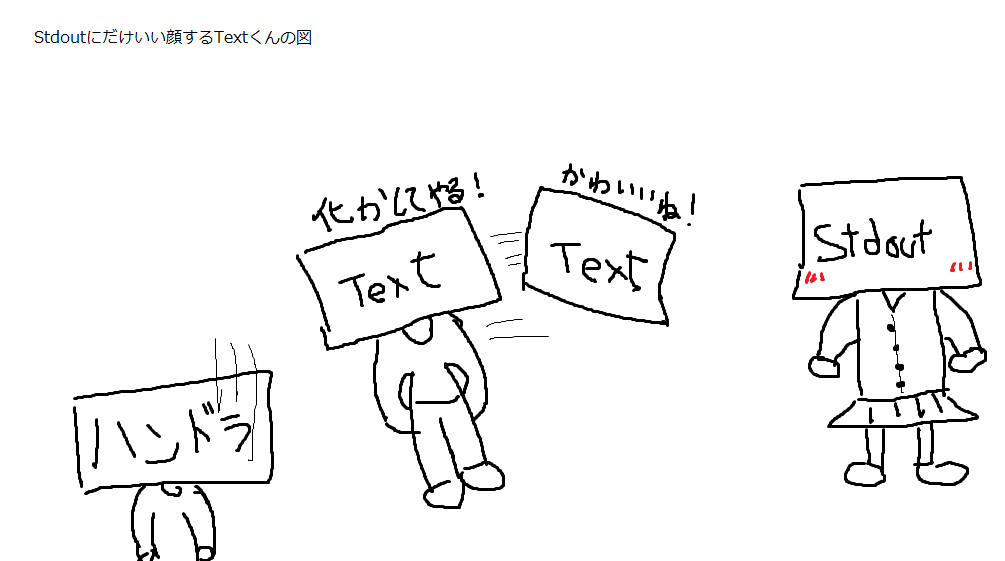 Stdoutにだけいい顔するTextくんの図
化かしてやる!
かわいいね!
Text
Text
Stdout
ハンドラ